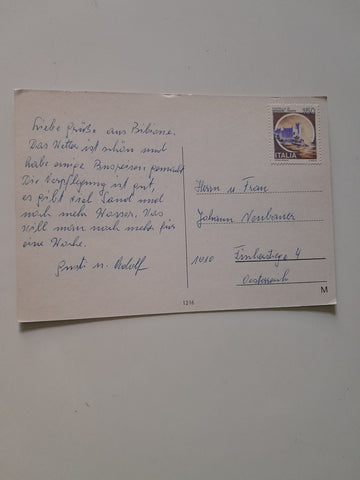 Liebe Grüße aus Bibione.
Das Wetter ist schön und
habe einige Busreisen gemacht
Die Verpflegung ist gut,
es gibt viel Sand und
noch mehr Wasser. Was
will man noch mehr für
eine Woche.
Gusti u. Adolf
950
ITALIA
Herrn u. Frau
Johann Neubauer
1010
4
Oesterreich
1216
M